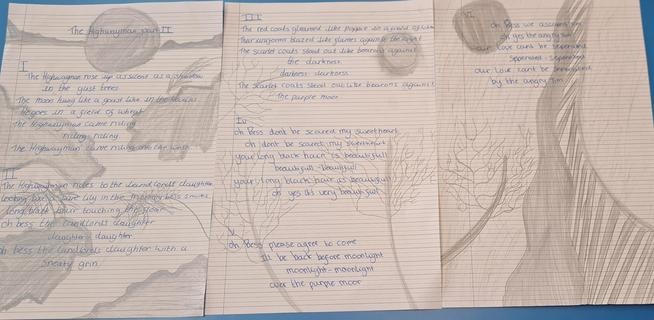 The Highwayman part II
I
The Highwayman rose up as silent as a shadow
in the gust trees
The moon hung like a goast like in the
He goes in a field of wheat
The Highwayman came riding
riding-riding
The Highwayman came riding into the
II
The Highwayman rides to the landlords daughter
looking like a pure lily in the
long black hair touching the floor
oh bess the landlords daughter
daughter-daughter
oh bess the landlords daughter with a
sneaky grin
III
The red coats gleamed like poppies in a
Their uniforms blazed like flames against the
The Scarlet coats stood out like beacons against
the darkness
darkness-darkness
The scarlet coats stood out like beacons against
the purple moor
IV
oh Bess dont be scared my sweetheart
oh dont be scared my sweetheart
your long black hair is beautifull
beautifull-beautifull
your long black hair is beautifull
oh yes its very beautifull
V
oh Bess please agree to come
Ill be back before moonlight
moonlight-moonlight
over the purple moor
VI
oh Bess we
oh yes the angry Tim
our love cant be seperated
seperated-seperated
our love cant be
by the angry Tim